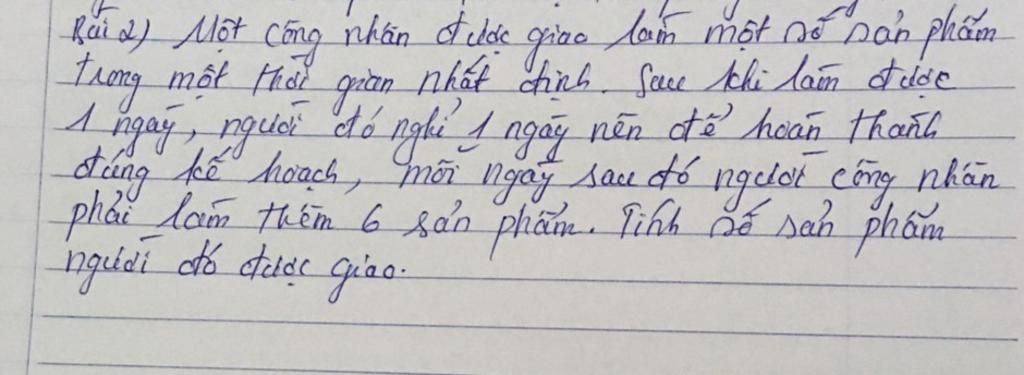 Bài 2) Một công nhân được giao làm một số sản phẩm
trong một thời gian nhất định. Sau khi làm được
1 ngày, người đó nghỉ 1 ngày nên để hoàn thành
đúng kế hoạch, mỗi ngày sau đó người công nhân
phải làm thêm 6 sản phẩm. Tính số sản phẩm
người đó được giao.